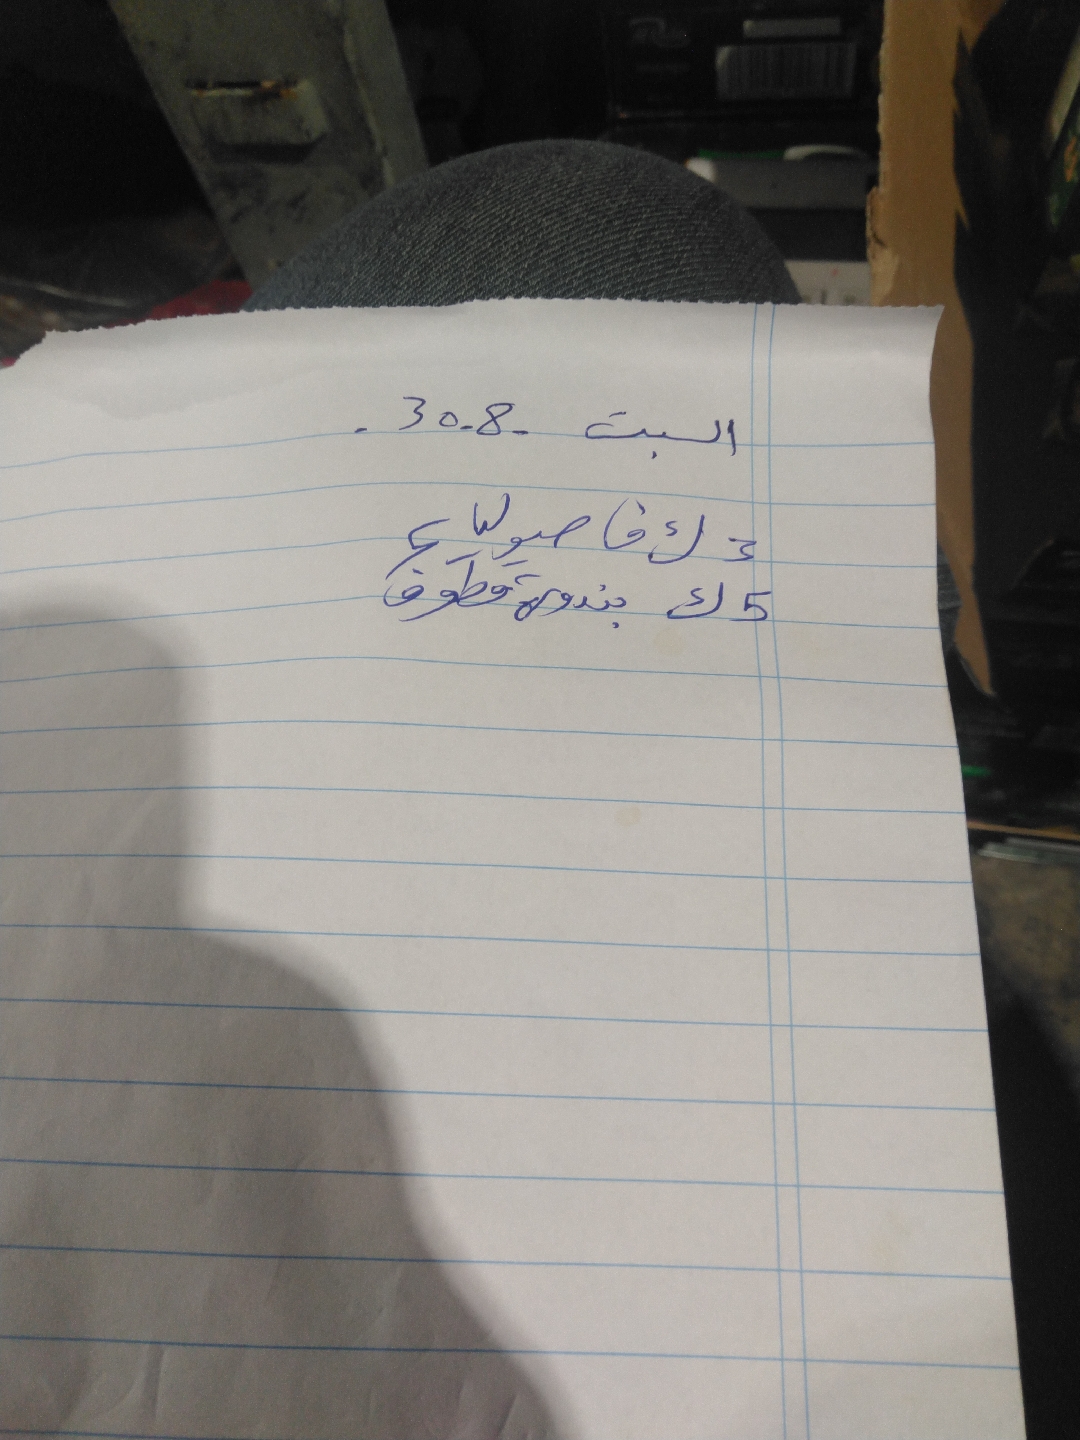 السبت - 30.8 .
3 ك فاصوليا ع
5 ك بندورة قطوف